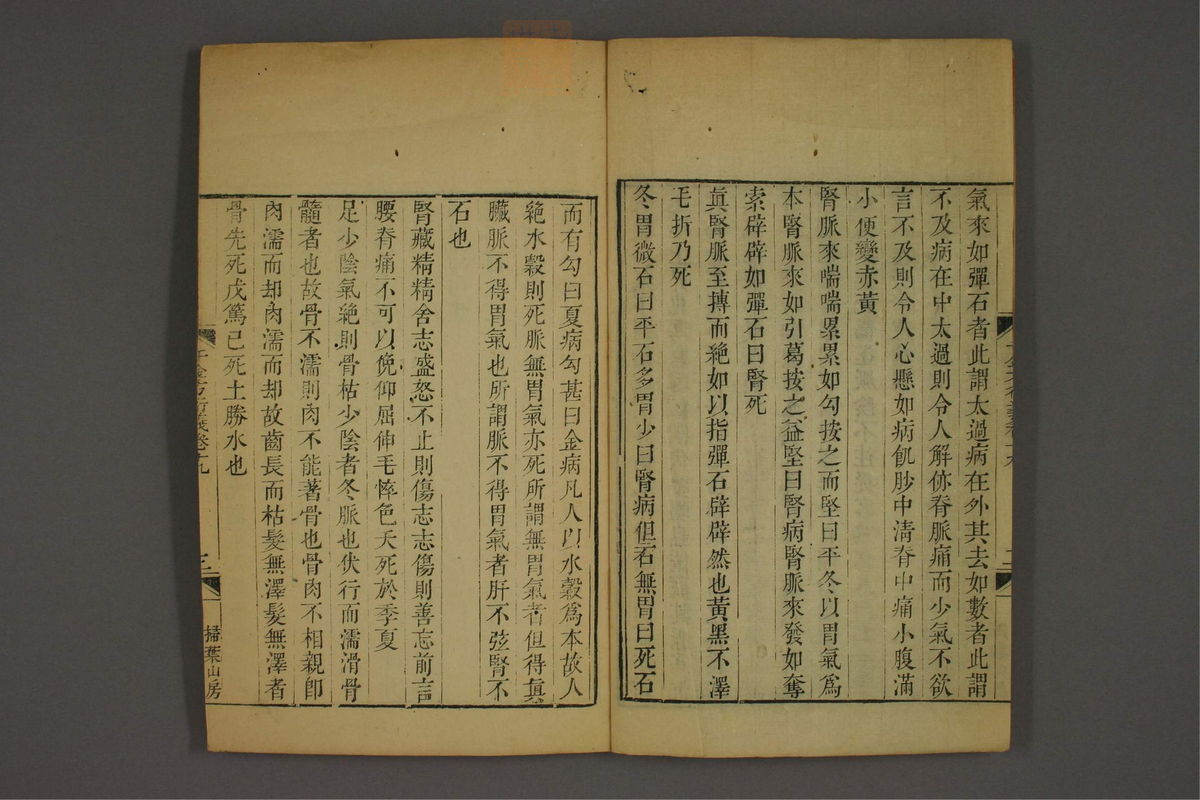 氣來如彈石者此謂太過病在外其去如數者此謂
不及病在中太過則令人解㑊脊脈痛而少氣不欲
言不及則令人心懸如病飢䏚中清脊中痛小腹滿
小便變赤黃
腎脈來喘喘累累如勾按之而堅曰平冬以胃氣爲
本腎脈來如引葛按之益堅曰腎病腎脈來發如奪
索辟辟如彈石曰腎死
真腎脈至搏而絕如以指彈石辟辟然也黃黑不澤
毛折乃死
冬胃微石曰平石多胃少曰腎病但石無胃曰死石
而有勾曰夏病勾甚曰金病凡人以水穀爲本故人
絕水穀則死脈無胃氣亦死所謂無胃氣者但得真
臟脈不得胃氣也所謂脈不得胃氣者肝不弦腎不
石也
腎藏精精舍志盛怒不止則傷志志傷則善忘前言
腰脊痛不可以俛仰屈伸毛悴色夭死於季夏
足少陰氣絕則骨枯少陰者冬脈也伏行而濡滑骨
髓者也故骨不濡則肉不能著骨也骨肉不相親即
肉濡而却肉濡而却故齒長而枯髮無澤髮無澤者
骨先死戊篤己死土勝水也
千金方衍義卷十九
三
掃葉山房